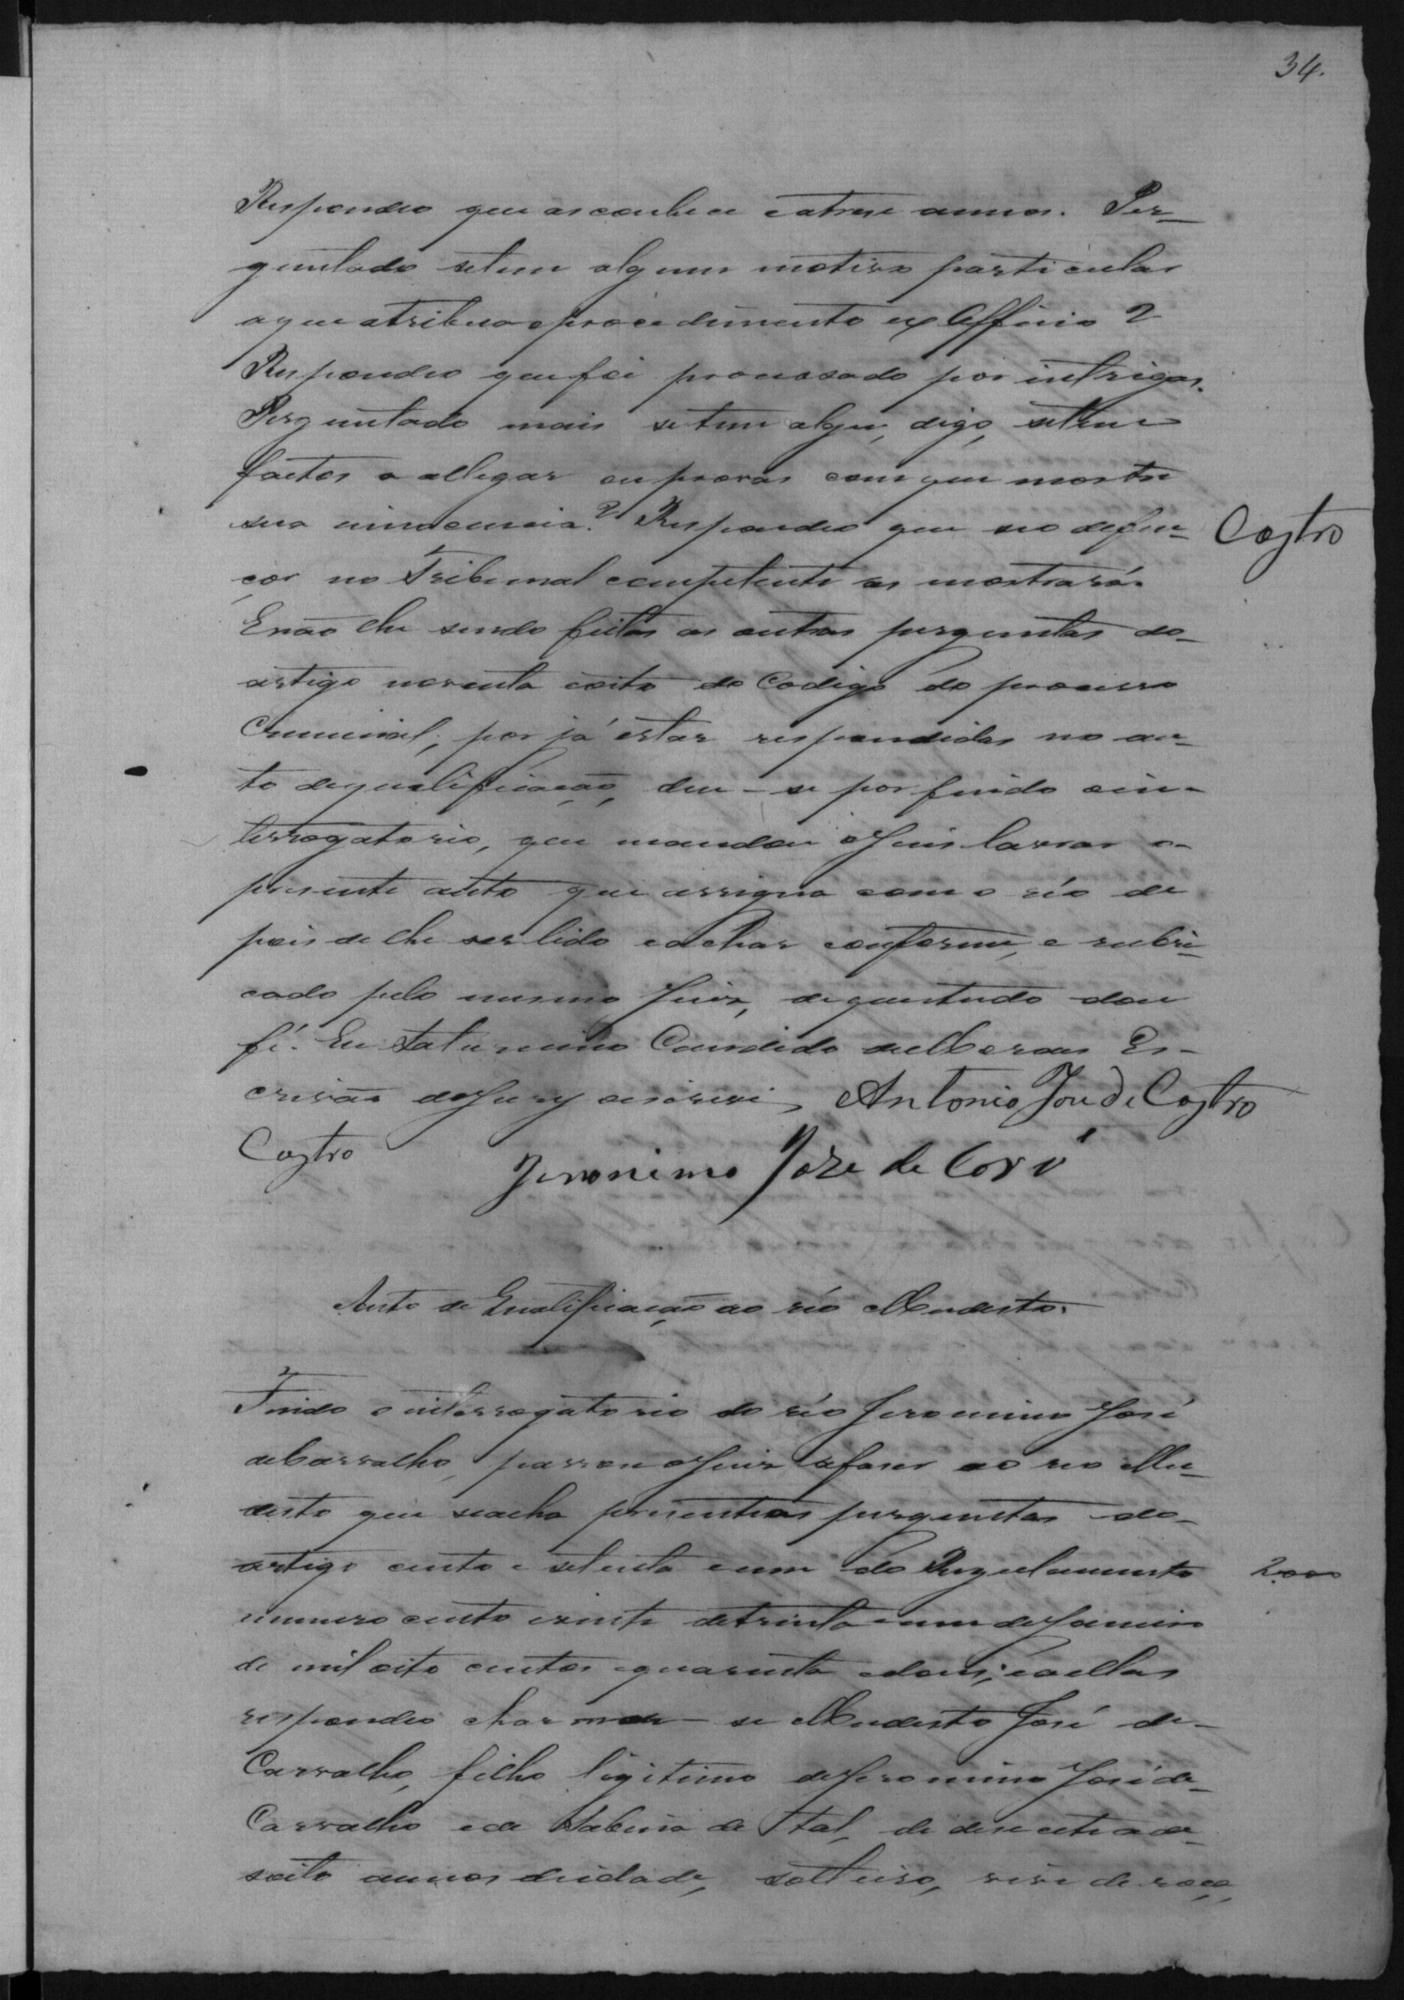 34.
Respondeo que as conhece a trese annos. Per-
guntado se tem algum motivo particular
a que atribua o procedimento ex Officio?
Respondeo que foi processado por intrigas.
Perguntado mais se tem algu, digo, se tem
factos a allegar ou provas com que mostre
sua innocencia? Respondeo que seo defen-
çor no Tribunal competente as mostrará.
E não lhe sendo feitas as outras perguntas do
artigo noventa e oito do Codigo do processo
Criminal, por já estar respondidas no au-
to de qualificação, deu-se por findo o in-
terrogatorio, que mandou o Juis lavrar o
presente auto que assigna com o réo de
pois de lhe ser lido e achar conforme, e rubri-
cado pelo mesmo Juiz, de que tudo dou
fé. Eu Saturnino Candido de Moraes Es-
crivão do Jury escrevi
Castro
Antonio José de Castro
Castro
Jeronimo José de
Auto de Qualificação ao réo Modesto.
Findo o interrogatorio do réo Jeronimo José
de Carvalho, passou o Juiz a faser ao reo Mo-
desto que se acha presente as perguntas do
artigo cento e setenta e um do Regulamento
2.000
numero cento e vinte de trinta e um de Janeiro
de mil oito centos quarenta e dous, e a ellas
respondeo chamar-se Modesto José de
Carvalho, filho ligitimo de Jeronimo José de
Carvalho e de Sabina de Tal, de desecete a de-
soito annos de idade, solteiro, vive de roça,